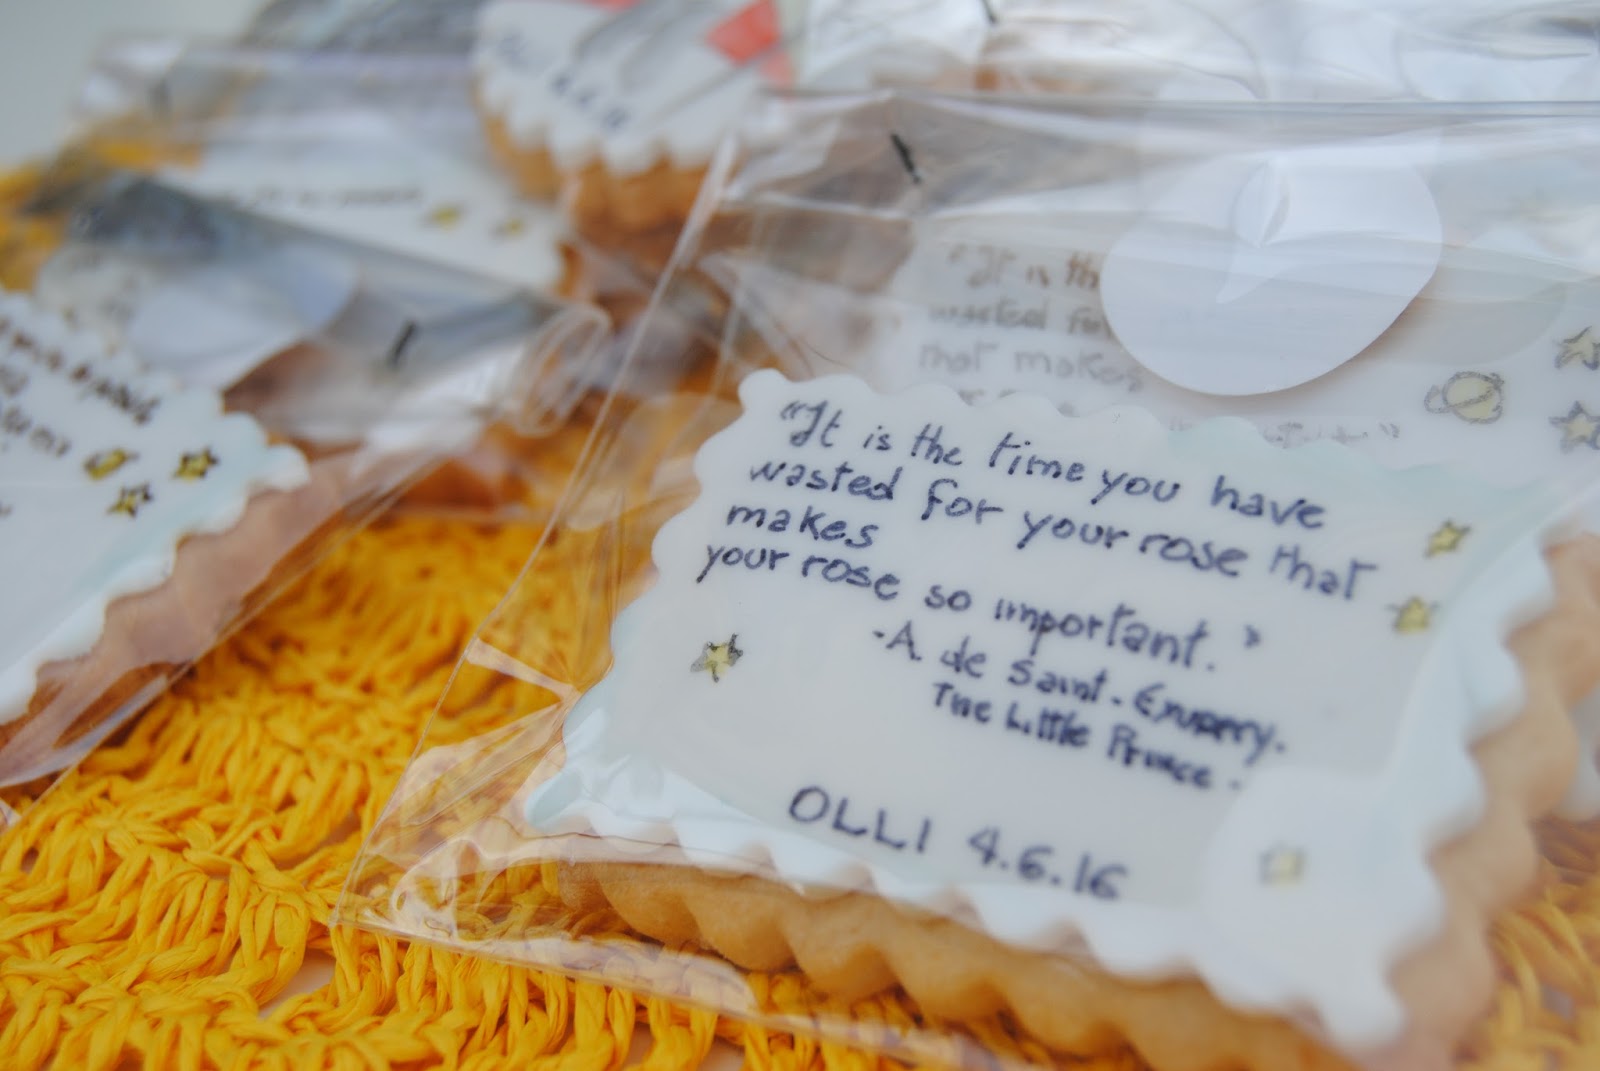 "It is the time you have
wasted for your rose that
makes
your rose so important."
-A. de Saint-Exupery.
The Little Prince -
OLLI 4.6.16
"It is th
wasted for
that makes